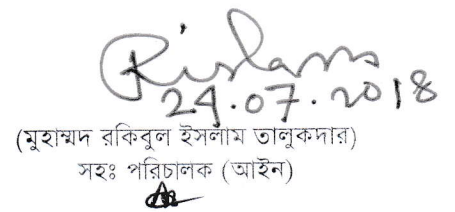 Rislam
24.07.2018
(মুহাম্মদ রকিবুল ইসলাম তালুকদার)
সহঃ পরিচালক (আইন)